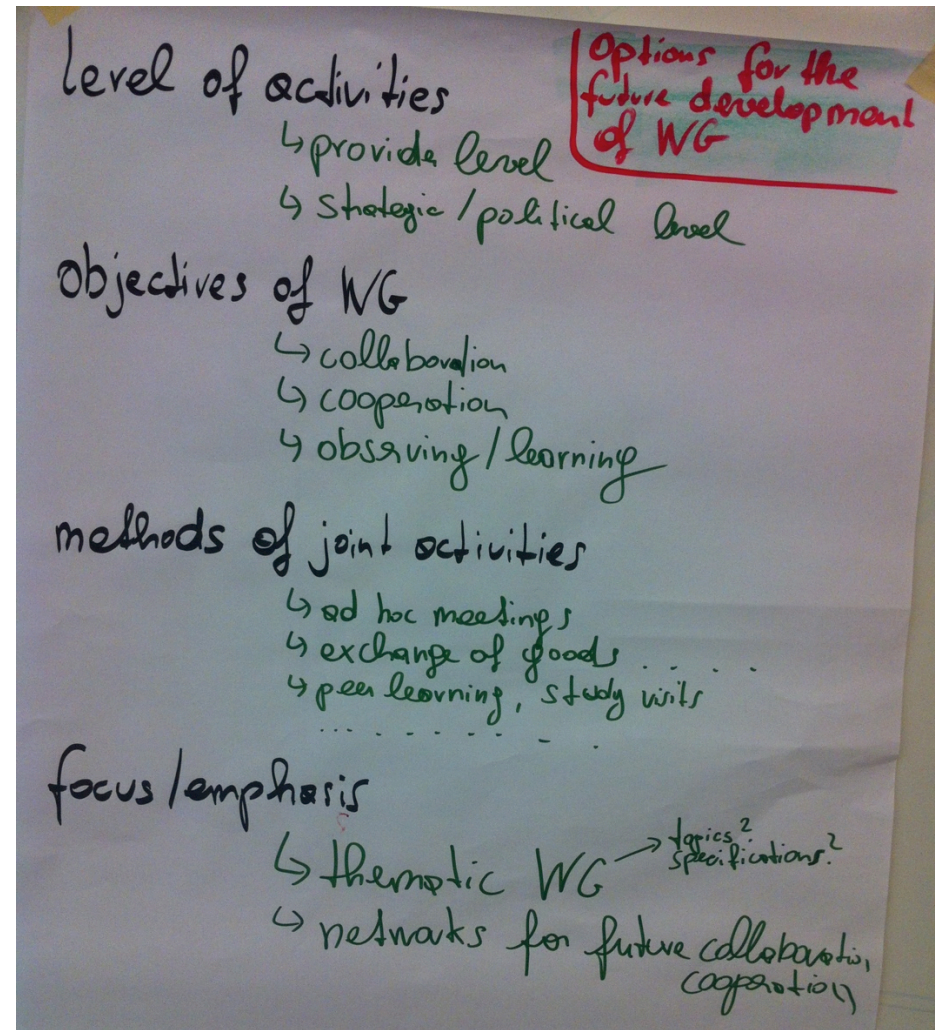 Options for the
future development
of WG
level of activities
↳ provide level
↳ strategic/political level
objectives of WG
↳ collaboration
↳ cooperation
↳ observing/learning
methods of joint activities
↳ ad hoc meetings
↳ exchange of goods.....
↳ peer learning, study visits
.........
focus/emphasis
↳ thematic WG → topics?
specifications?
↳ networks for future collaboration,
cooperation